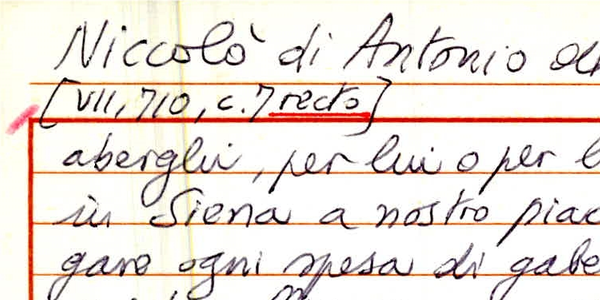 Niccolò di Antonio
[VII, 710, c. 7 recto]
aberghi, per lui o per l
in Siena a nostro piac
gare ogni spesa di gabe